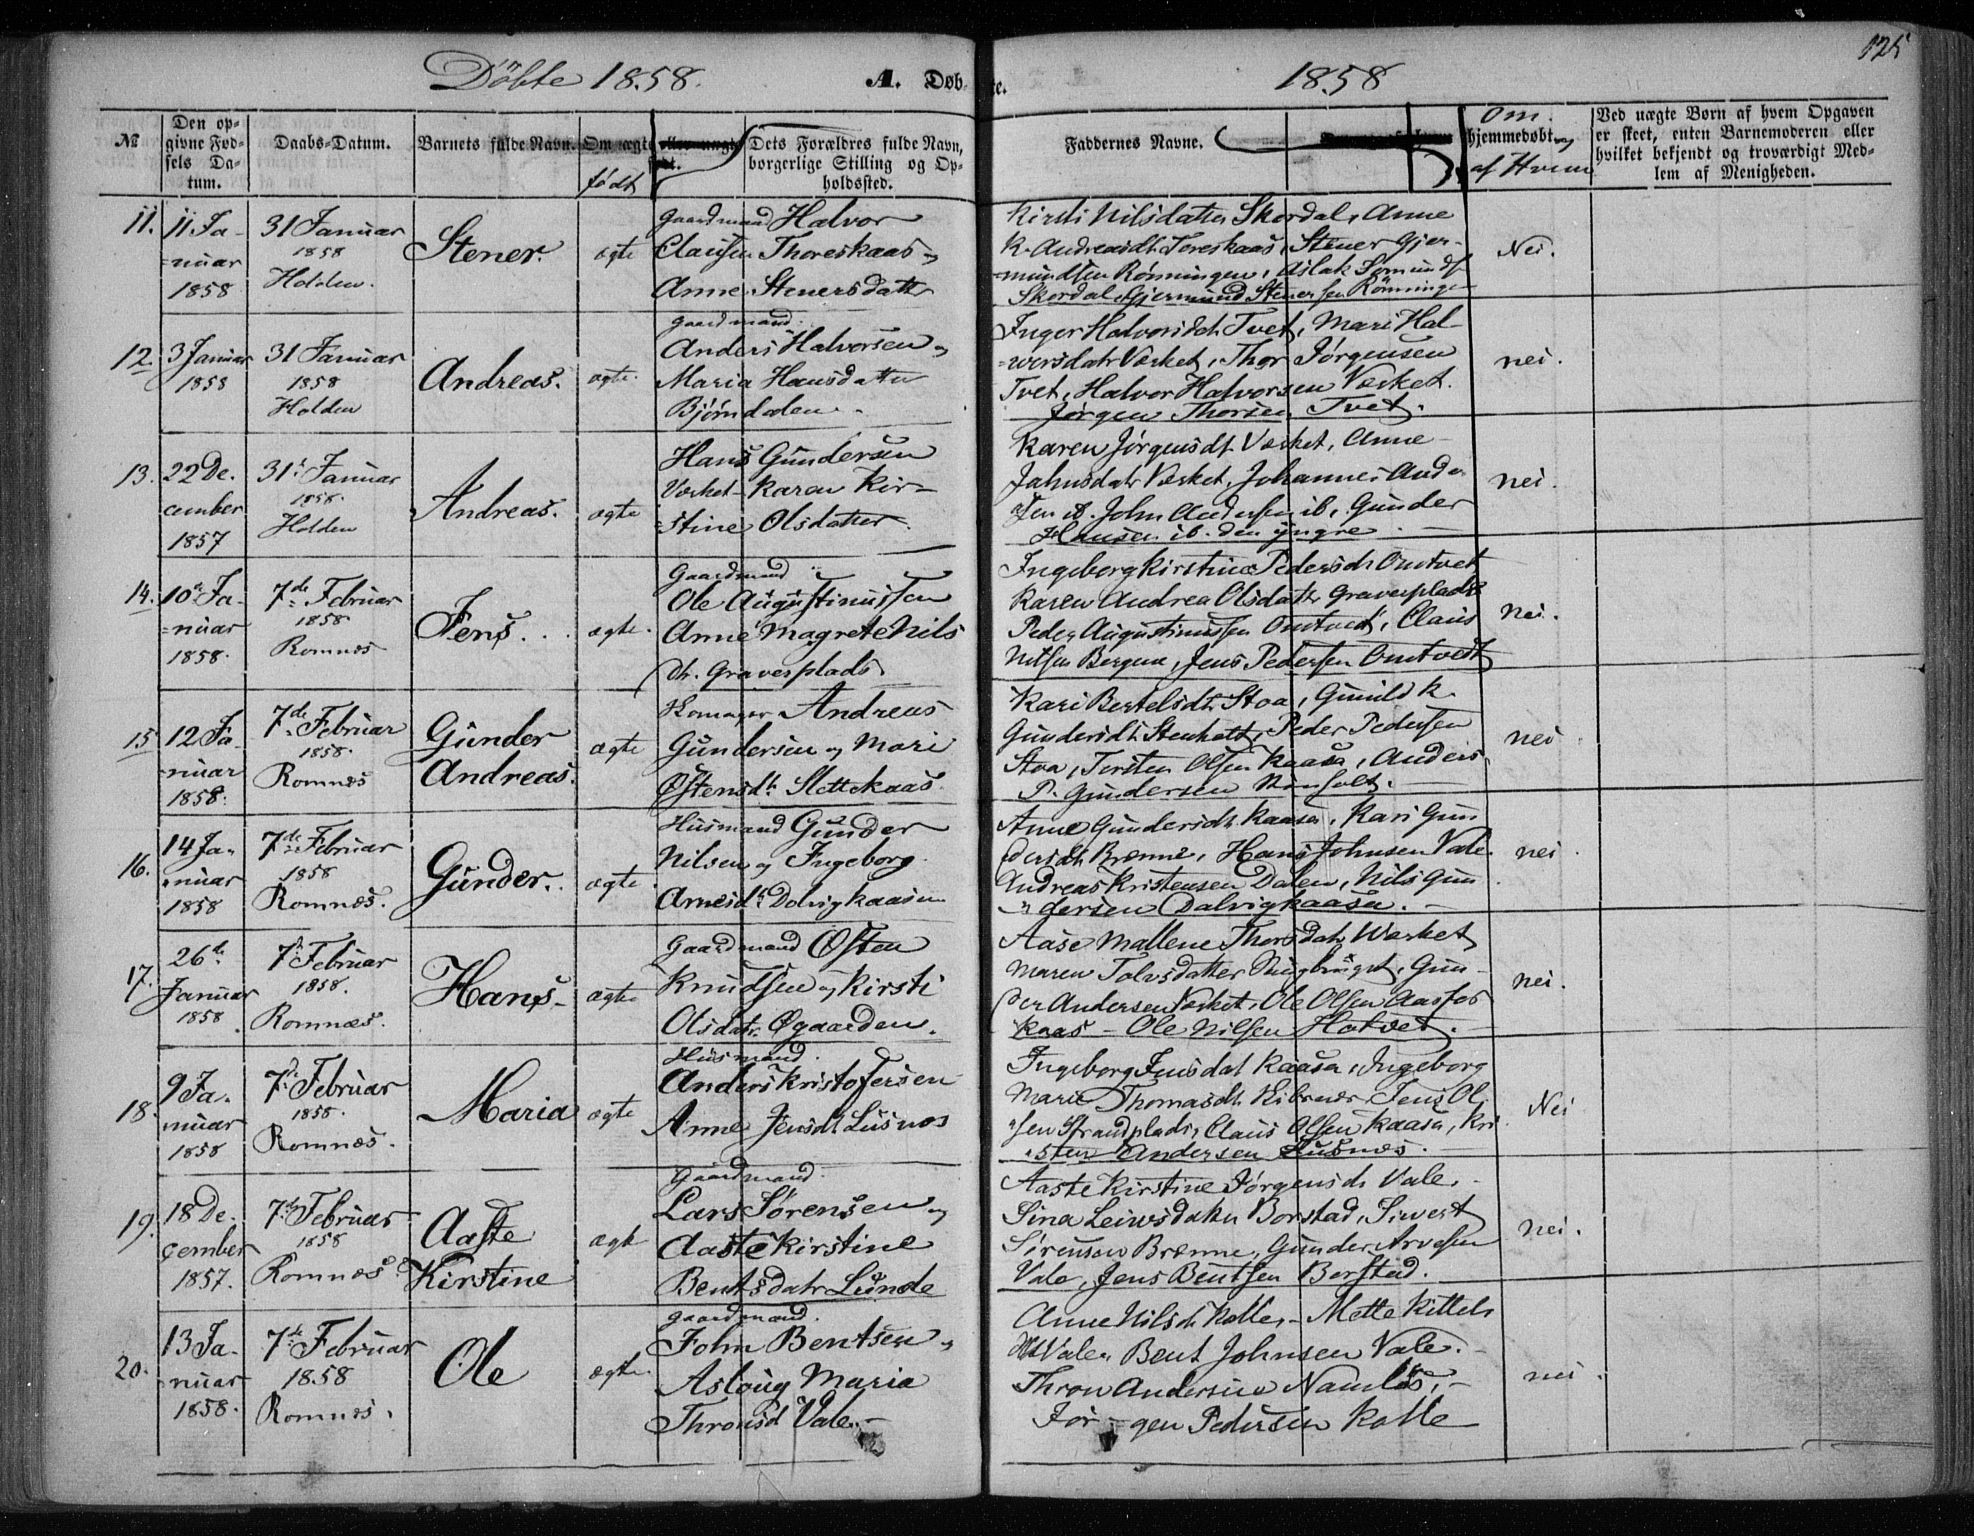 125
Döbte 1858. A. Døb- te. 1858
№
Den op-
givne Fød-
sels Da-
tum.
Daabs-Datum.
Barnets fulde Navn.
Om ægte eller uægte
født
Dets Forældres fulde Navn,
borgerlige Stilling og Op-
holdssted.
Faddernes Navne.
Om
hjemmedøbt og
af Hvem
Ved uægte Børn af hvem Opgaven
er skeet, enten Barnemoderen eller
hvilket bekjendt og troværdigt Med-
lem af Menigheden.
11.
11 Ja-
nuar
1858
31 Januar
1858
Holden.
Stener.
ægte
Gaardmand Halvor
Clausen Thoreskaas og
Anne Stenersdatter
Kirsti Nilsdatter Skordal, Anne
K. Andreasdt. Toreskaas, Stener Gjer-
mundsen Rönningen, Aslak
Skordal, Gjermund Stenersen Rönningen
Nei.
12.
3 Januar
1858
31 Januar
1858
Holden
Andreas.
ægte.
Gaardmand.
Anders Halvorsen og
Maria Hansdatter
Bjørndalen.
Inger Halvorsdtr. Tvet, Mari Hal-
vorsdatr Værket, Thor Jørgensen
Tvet, Halvor Halvorsen Værket.
Jørgen Thorsen Tvet.
nei.
13.
22 De-
cember
1857
31 Januar
1858.
Holden
Andreas.
ægte
Hans Gundersen
Værket - Karen Kir-
stine Olsdatter.
Karen Jørgensdt. Værket, Anne
Jahnsdatr Værket, Johannes Ander
sen ib. John Andersen ib, Gunder
Hansen ib. den yngre.
nei.
14.
10de Ja-
nuar
1858.
7de Februar
1858.
Romnes
Jens.
ægte.
Gaardmand
Ole Augustinussen
Anne Magrete Nils
dt. Graverplads
Ingeborg Kirstine Pedersdt. Omtvet
Karen Andrea Olsdatter Graverplads
Peder Augustinussen Omtvedt, Claus
Nilsen Bergene, Jens Pedersen Omtvedt
nei.
15
12 Ja-
nuar
1858.
7de Februar
1858.
Romnæs
Gunder
Andreas.
ægte
Andreas
Gundersen og Mari
Østensdt. Slettekaas.
Kari Bertelsdt. Stoa, Gunild K.
Gundersdt. Stenholt, Peder Pedersen
Stoa, Torsten Olsen Kaasa, Anders
P. Gundersen
nei.
16.
14 Ja-
nuar
1858
7de Februar
1858
Romnæs.
Gunder.
ægte.
Husmand Gunder
Nilsen og Ingeborg
Arnesdt. Dalvigkaasen
Anne Gundersdt. Kaasa, Kari Gun
dersdt. Brenne, Hans Johnsen Vale.
Andreas Kristensen Dalen, Nils Gun
dersen Dalvigkaasa.
nei.
17.
26de
Januar
1858
7de Februar
1858.
Romnæs.
Hans.
ægte
Gaardmand Østen
Knudsen og Kirsti
Olsdatr. Øgaarden.
Aase Mallene Thorsdatr. Værket
Maren Tolvsdatter, Gun-
der Andersen Værket, Ole Olsen Aasfos
kaas - Ole Nilsen Hatvet.
nei.
18.
9 Ja-
nuar
1858
7de Februar
1858.
Romnæs.
Maria
ægte
Husmand.
Anders Kristofersen
Anne Jensdt. Lusnæs
Ingeborg Jensdat. Kaasa, Ingeborg
Marie Thomasdt., Jens Ol
sen Strandplads, Claus Olsen Kaasa, Kri
sten Andersen Lusnæs.
Nei
19.
18 De-
cember
1857.
7de Februar
1858
Romnæs
Aaste
Kirstine
ægte
Gaardmand.
Lars Sørensen og
Aaste Kirstine
Bentsdatr Lunde
Aaste Kirstine Jørgensdt. Vale,
Sina Leivsdatter Borstad, Sivert
Sørensen Brenne, Gunder Arvesen
Vale, Jens Bentsen Borstad.
nei.
20.
13 Ja-
nuar
1858.
7de Februar
1858
Romnæs.
Ole
ægte
Gaardmand.
John Bentsen og
Asloug Maria
Thronsd Vale.
Anne Nilsdt. Kolle, Mette Kittels
dt Vale, Bent Johnsen Vale.
Thron Andersen Namløs,
Jør-gen Pedersen Kolle
nei.